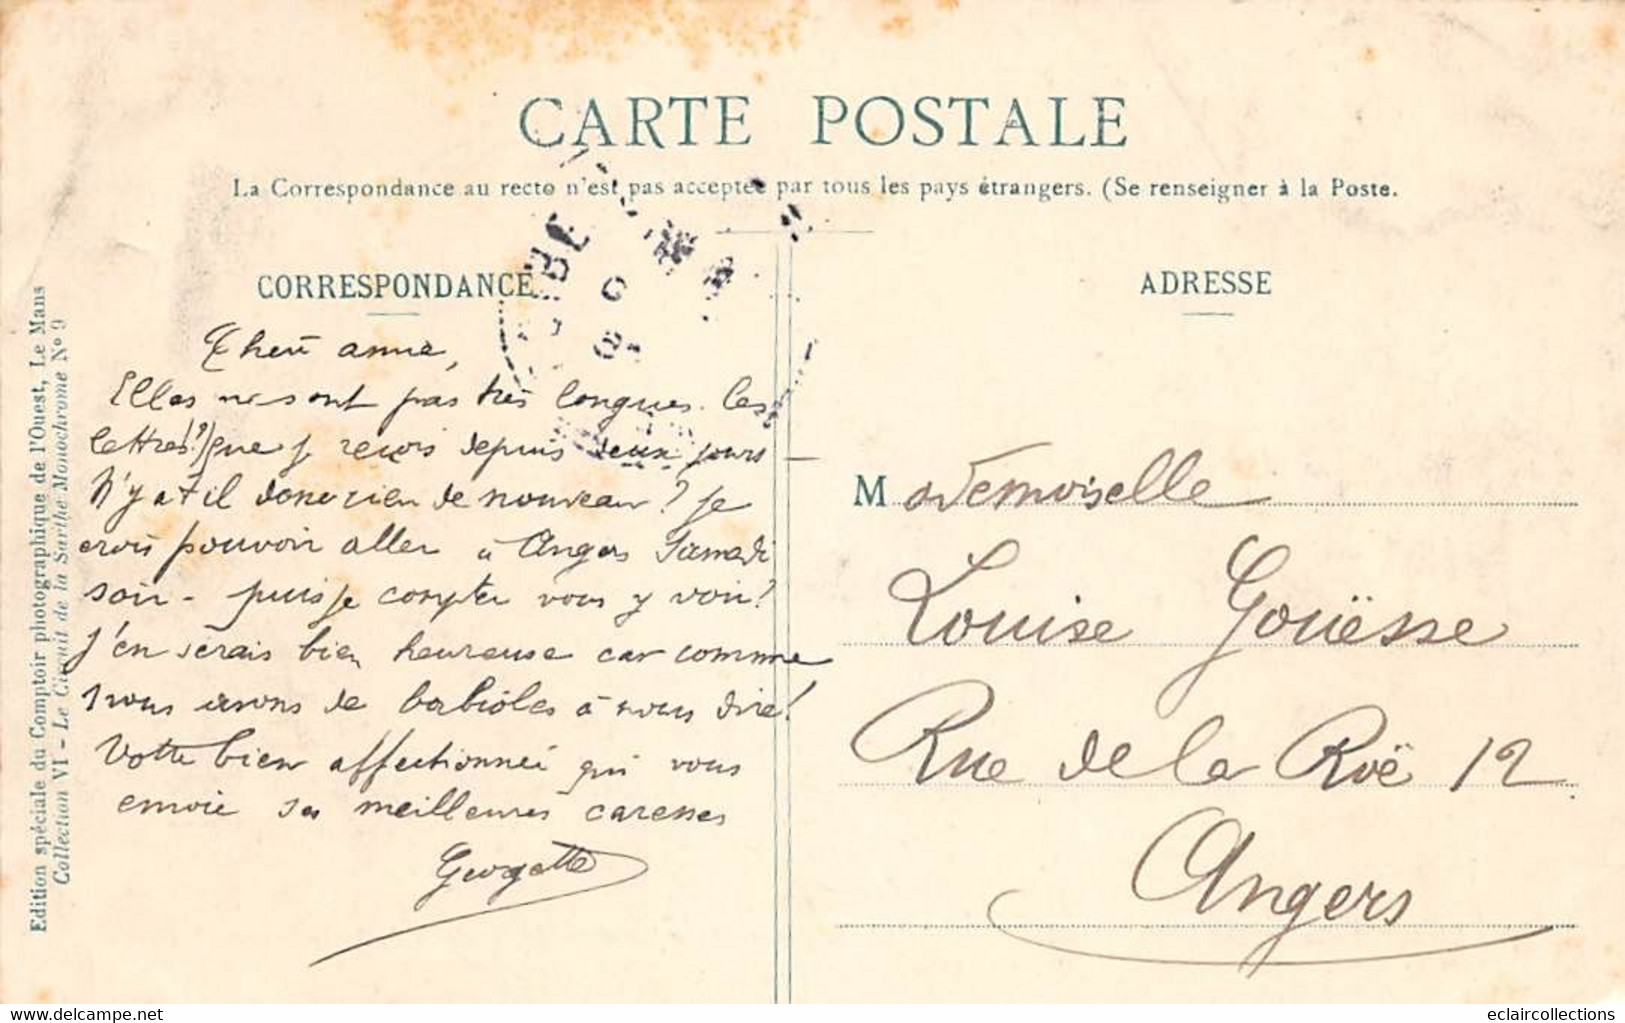 CARTE POSTALE
La Correspondance au recto n'est pas acceptée par tous les pays étrangers. (Se renseigner à la Poste.
CORRESPONDANCE
Chère amie,
Elles ne sont pas très longues les
lettres(?) que je reçois depuis deux jours
N'y a t il donc rien de nouveau? Je
crois pouvoir aller à Angers Samedi
soir - puis je compter vous y voir?
J'en serais bien heureuse car comme
nous avons de babioles à nous dire!
Votre bien affectionnée qui vous
envoie ses meilleures caresses
Georgette
ADRESSE
Mademoiselle
Louise Gouësse
Rue de la Roë 12
Angers
Edition spéciale du Comptoir photographique de l'Ouest, Le Mans
Collection VI - Le Circuit de la Sarthe Monochrome N° 9
delcampe.net
eclaircollections